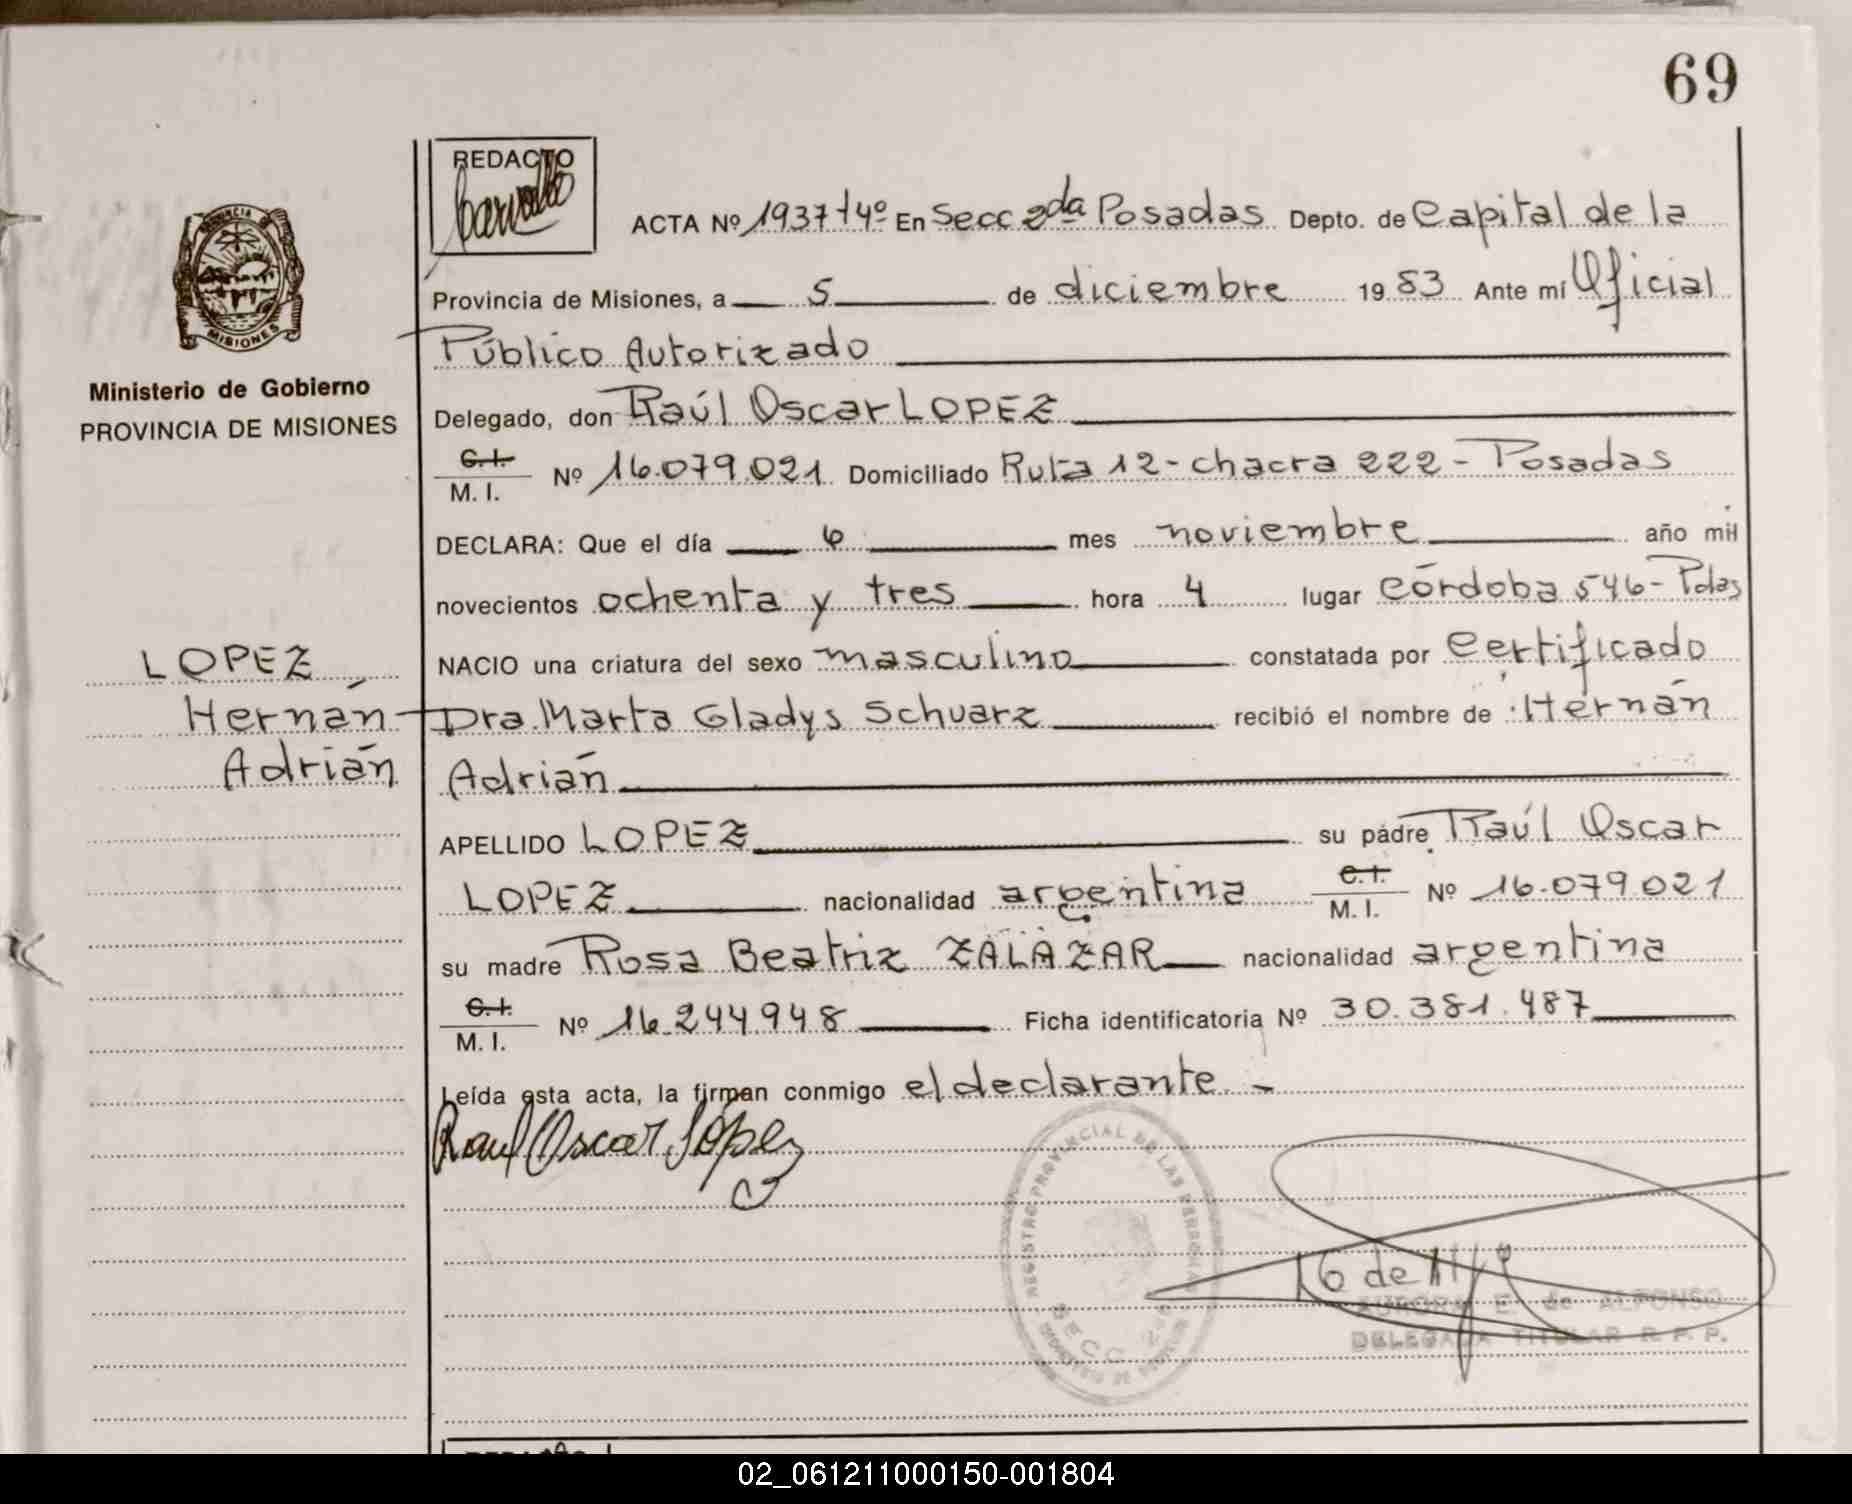 69
REDACTO
ACTA Nº 1937 t4º En Secc 2da Posadas Depto. de Capital de la
PROVINCIA DE
MISIONES
Provincia de Misiones, a 5 de diciembre 1983 Ante mí Oficial
Público Autorizado
Ministerio de Gobierno
PROVINCIA DE MISIONES
Delegado, don Raúl Oscar LOPEZ
C.I.
M. I. Nº 16.079.021 Domiciliado Ruta 12-chacra 222-Posadas
DECLARA: Que el día 6 mes noviembre año mil
novecientos ochenta y tres hora 4 lugar Córdoba 546-Pdas
LOPEZ,
Hernán
Adrián
NACIO una criatura del sexo masculino constatada por Certificado
Dra. Marta Gladys Schuarz recibió el nombre de Hernán
Adrián
APELLIDO LOPEZ su padre Raúl Oscar
LOPEZ nacionalidad argentina C.I.
M. I. Nº 16.079.021
su madre Rosa Beatriz ZALAZAR nacionalidad argentina
C.I.
M. I. Nº 16.244.948 Ficha identificatoria Nº 30.381.487
Leída esta acta, la firman conmigo el declarante.-
Raul Oscar López
REGISTRO PROVINCIAL DE LAS PERSONAS
SECC. 2
AURORA E. de ALFONSO
DELEGADA TITULAR R. P. P.
02_061211000150-001804